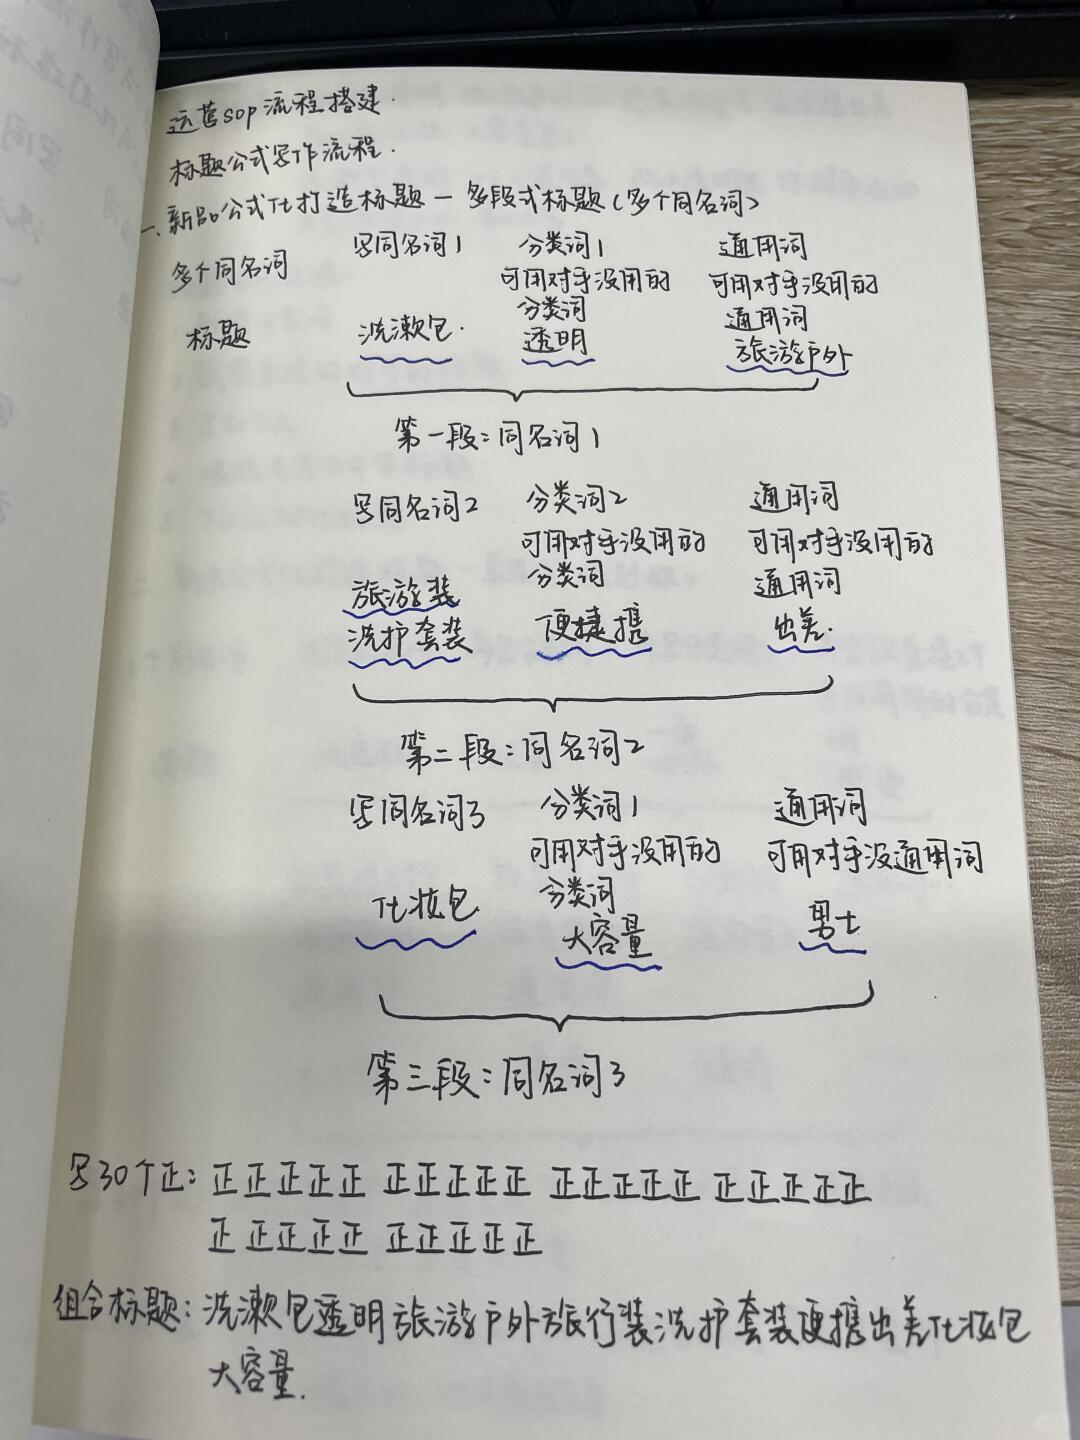 运营sop流程搭建.
标题公式写作流程.
一、新品公式化打造标题一多段式标题(多个同名词)
多个同名词 写同名词1 分类词1 通用词
可用对手没用的 可用对手没用的
分类词 通用词
标题 洗漱包. 透明 旅游户外
第一段:同名词1
写同名词2 分类词2 通用词
可用对手没用的 可用对手没用的
分类词 通用词
旅游装
洗护套装 便捷携 出差.
第二段:同名词2
写同名词3 分类词1 通用词
可用对手没用的 可用对手没通用词
分类词
化妆包 大容量 男士
第三段:同名词3
写30个正:正正正正正 正正正正正 正正正正正 正正正正正
正正正正正 正正正正正
组合标题:洗漱包透明旅游户外旅行装洗护套装便携出差化妆包
大容量.